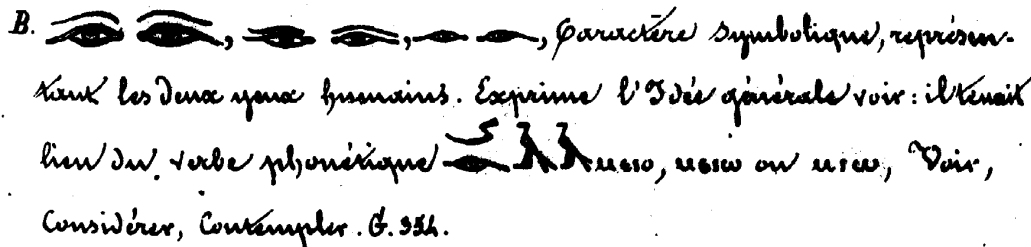 B. , , , Caractère symbolique, représen-
tant les deux yeux humains. Exprime l'Idée générale voir : il tenait
lieu du verbe phonétique ou Voir,
Considérer, Contempler. G.